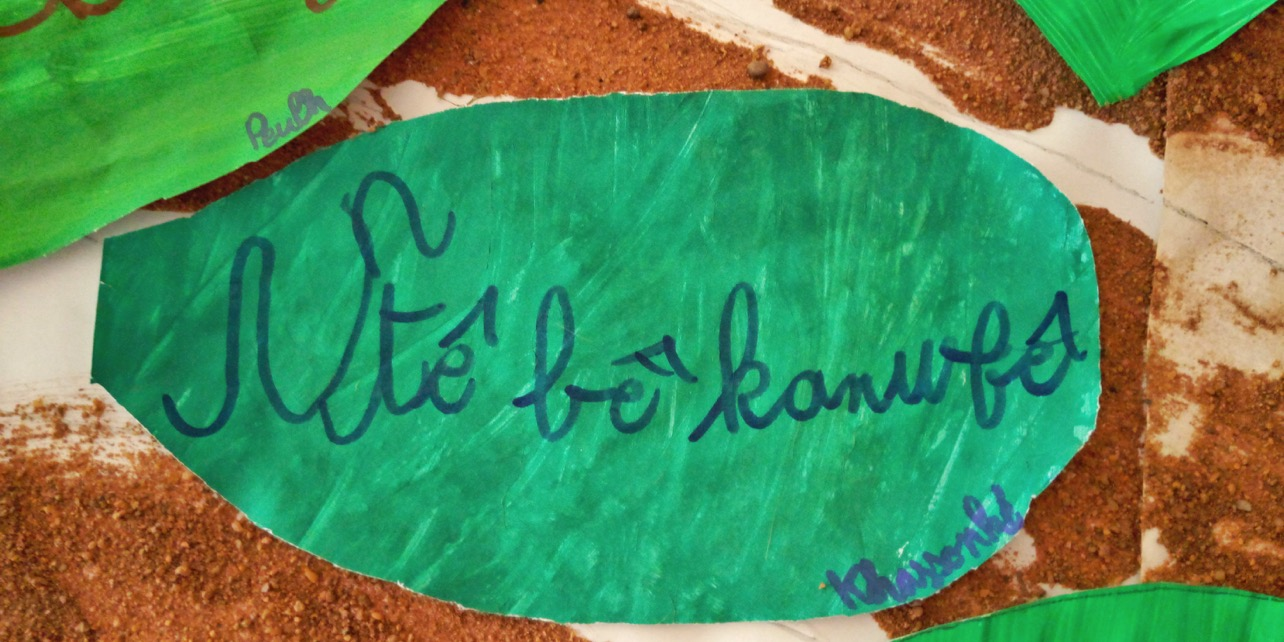 Peulh
Ntê bê kanubê
Khassonké